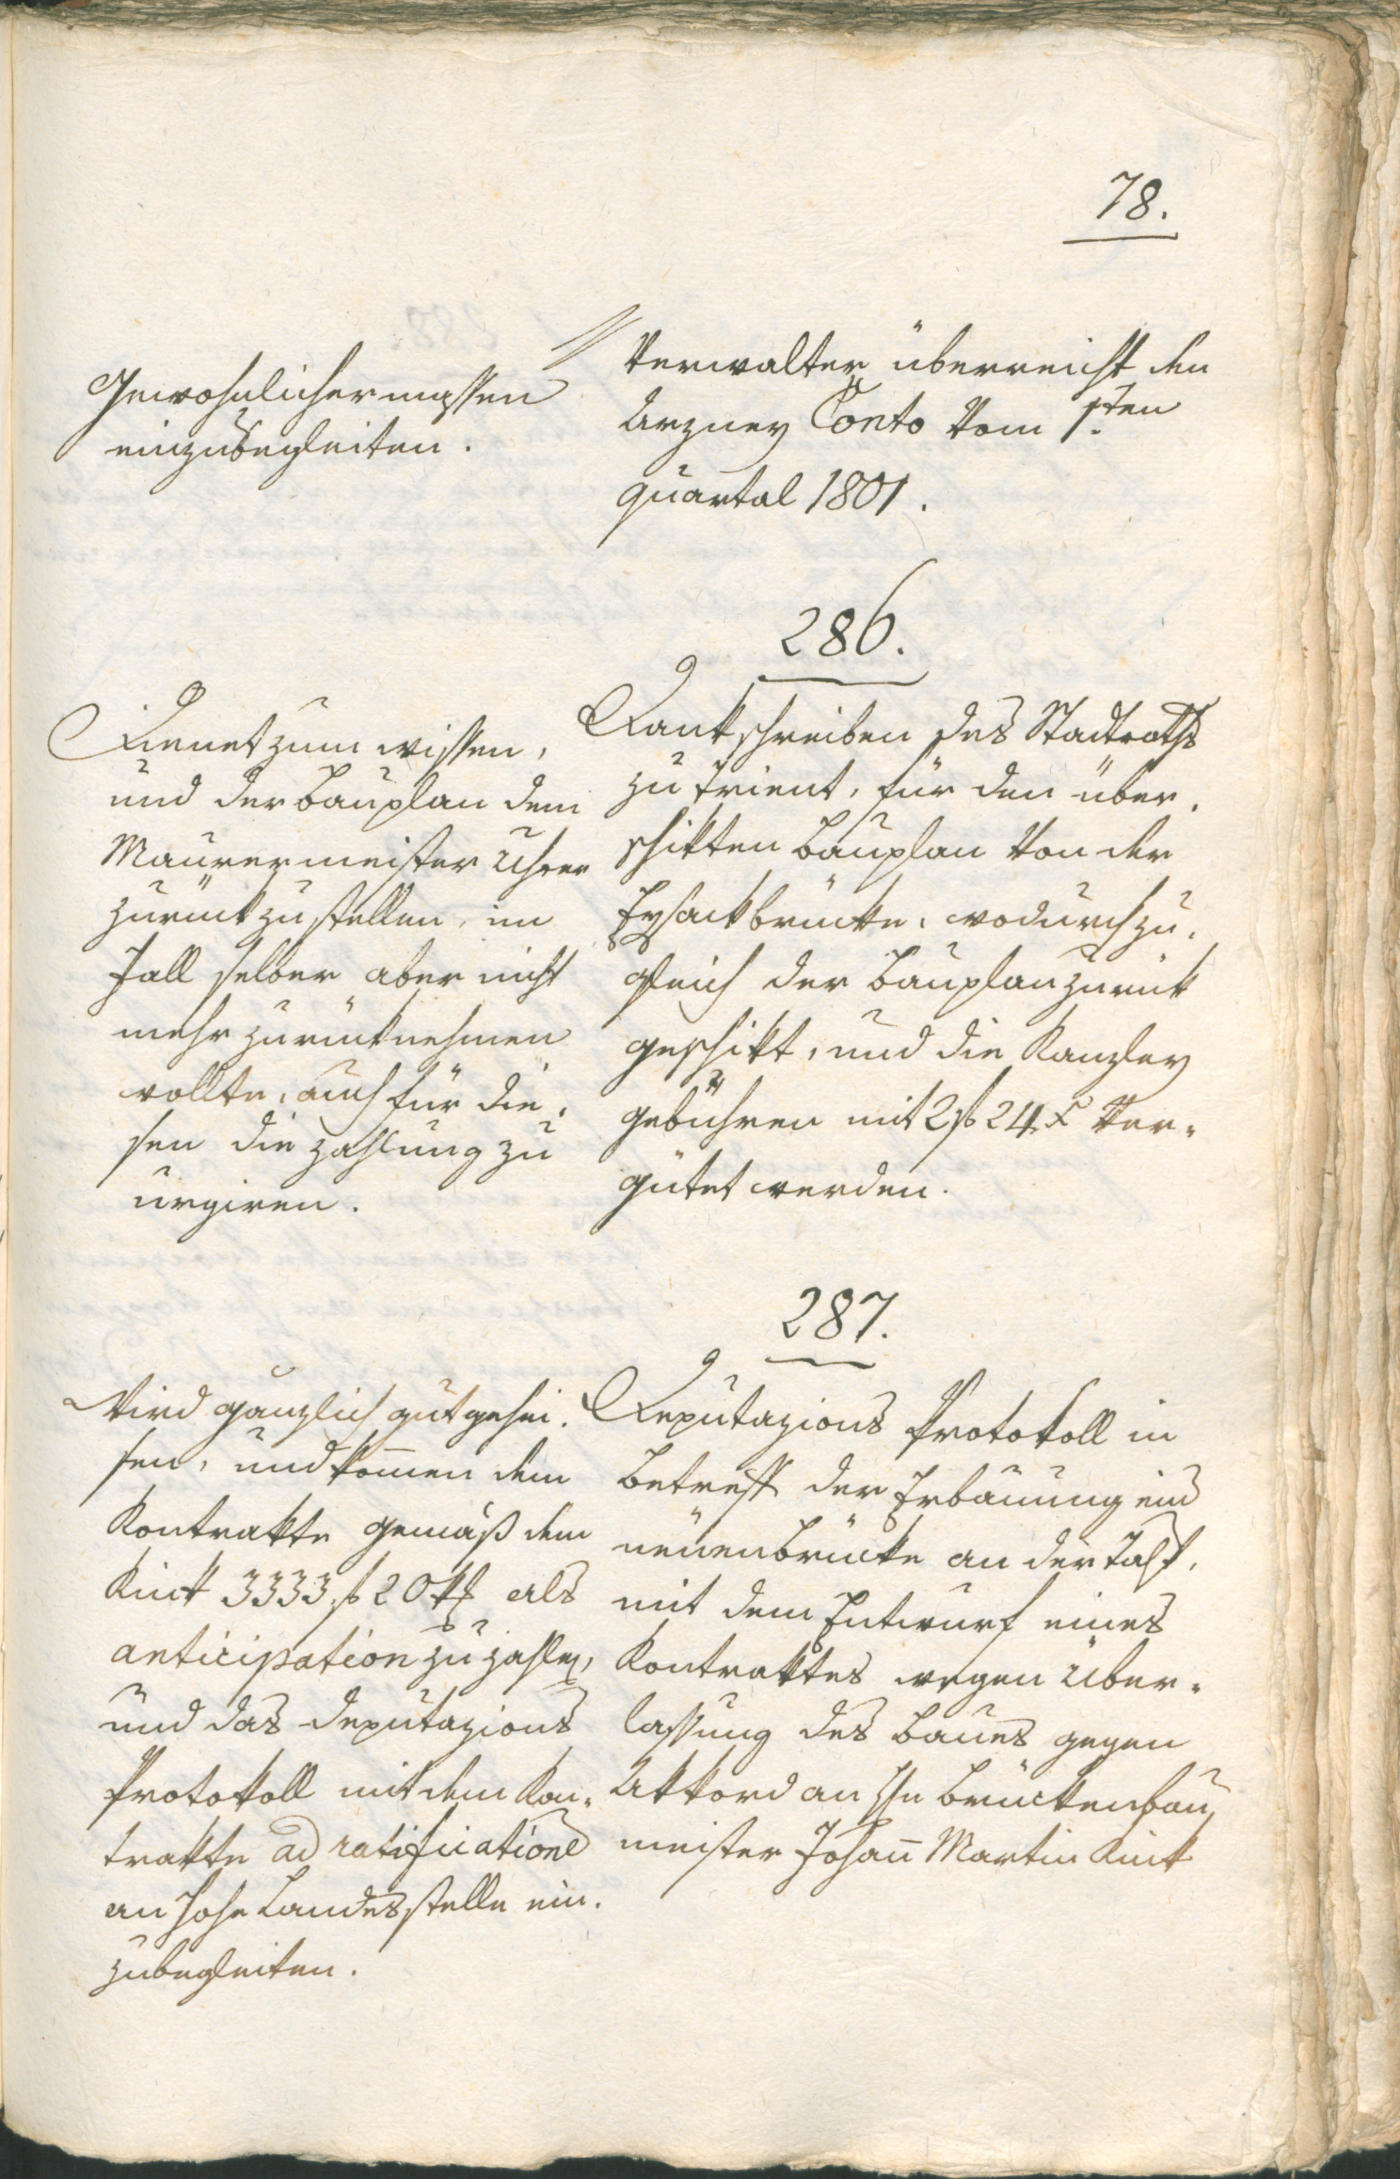 78.
Gewohnlichermassen
einzubegleiten.
Verwalter überreicht den
Arzney Conto vom 1ten
quartal 1801.
286.
Dienet zum wissen,
und der bauplan dem
Maurermeister Uhrer
zurückzustellen, im
fall selber aber nicht
mehr zurücknehmen
wollte, auch für die¬
sen die zahlung zu
urgiren.
Dankschreiben des Stadtraths
zu Trient, für den über¬
schikten bauplan von der
Eysackbrücke, wodurch zu¬
gleich der bauplan zurük
geschikt, und die Kanzley
gebühren mit 2 f 24 x ver¬
gütet werden.
287.
Wird ganzlich gutgehei¬
sen, und kom̄en dem
Kontrakte gemäß dem
Kink 3333 f 20 kr als
anticipation zu zahlen,
und das deputazions
Protokoll mit dem Kon¬
trakte ad ratificatione
an hohe Landesstelle ein¬
zubegleiten.
Deputazions Protokoll in
betreff der Erbauung einer
neuenbrücke an der Talf.
mit dem Entwurf eines
Kontraktes wegen Über¬
lassung des baues gegen
Akkord an Hn brückenbau¬
meister Johan̄ Martin Kink